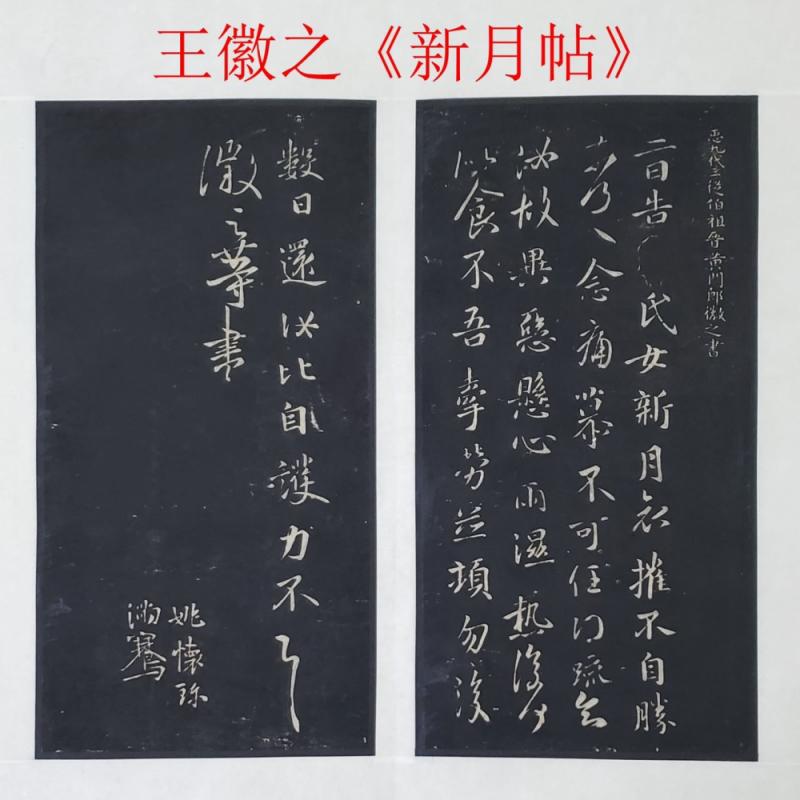 王徽之《新月帖》
臣九代三從伯祖晉黄門郎徽之書
二日告□氏女新月哀摧不自勝
奈何奈何念痛慕不可任得疏知
汝故異惡懸心雨濕熱復何
似食不吾牽勞並頓勿復
數日還汝比自護力不一一
徽之等書
姚懷珍
滿騫